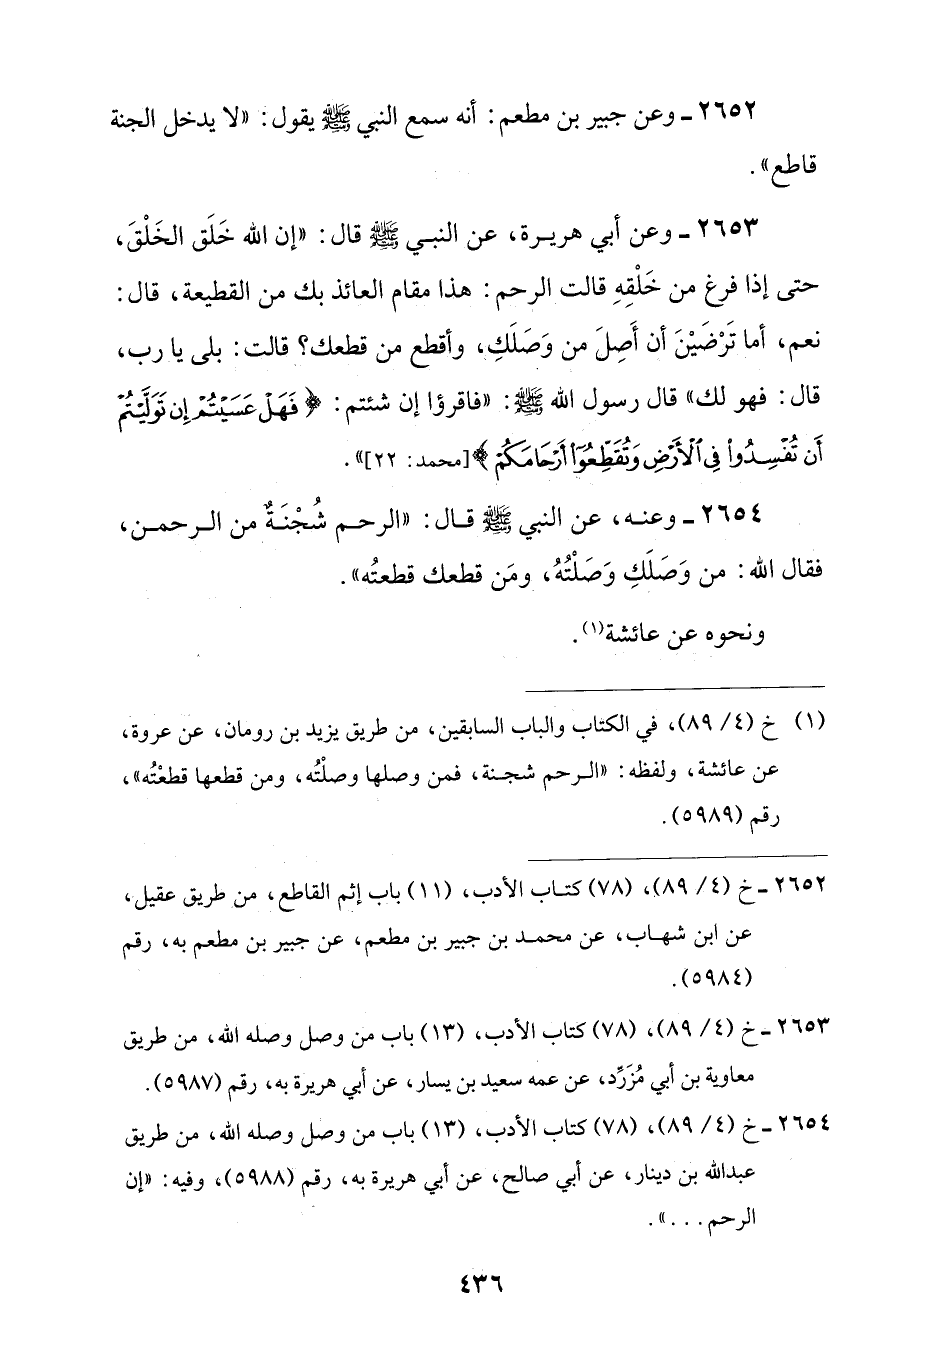 ٢٦٥٢ ـ وعن جبير بن مطعم: أنه سمع النبي ﷺ يقول: «لا يدخل الجنة
قاطع».
٢٦٥٣ ـ وعن أبي هريرة، عن النبي ﷺ قال: «إن الله خَلَق الخَلْقَ،
حتى إذا فرغ من خَلْقِهِ قالت الرحم: هذا مقام العائذ بك من القطيعة، قال:
نعم، أما تَرْضَيْنَ أن أَصِلَ من وَصَلَكِ، وأقطع من قطعك؟ قالت: بلى يا رب،
قال: فهو لك» قال رسول الله ﷺ: «فاقرؤا إن شئتم: ﴿فَهَلْ عَسَيْتُمْ إِن تَوَلَّيْتُمْ
أَن تُفْسِدُوا۟ فِى ٱلْأَرْضِ وَتُقَطِّعُوٓا۟ أَرْحَامَكُمْ﴾ [محمد: ٢٢]».
٢٦٥٤ ـ وعنه، عن النبي ﷺ قال: «الرحم شُجْنَةٌ من الرحمن،
فقال الله: من وَصَلَكِ وَصَلْتُهُ، ومَن قطعك قطعتُه».
ونحوه عن عائشة(١).
(١) خ (٤/ ٨٩)، في الكتاب والباب السابقين، من طريق يزيد بن رومان، عن عروة،
عن عائشة، ولفظه: «الرحم شجنة، فمن وصلها وصلْتُه، ومن قطعها قطعْتُه»،
رقم (٥٩٨٩).
٢٦٥٢ ـ خ (٤/ ٨٩)، (٧٨) كتاب الأدب، (١١) باب إثم القاطع، من طريق عقيل،
عن ابن شهاب، عن محمد بن جبير بن مطعم، عن جبير بن مطعم به، رقم
(٥٩٨٤).
٢٦٥٣ ـ خ (٤/ ٨٩)، (٧٨) كتاب الأدب، (١٣) باب من وصل وصله الله، من طريق
معاوية بن أبي مُزَرِّد، عن عمه سعيد بن يسار، عن أبي هريرة به، رقم (٥٩٨٧).
٢٦٥٤ ـ خ (٤/ ٨٩)، (٧٨) كتاب الأدب، (١٣) باب من وصل وصله الله، من طريق
عبدالله بن دينار، عن أبي صالح، عن أبي هريرة به، رقم (٥٩٨٨)، وفيه: «إن
الرحم...».
٤٣٦